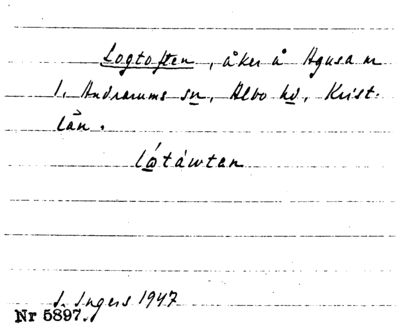 Logtoften, åker å Agusa nr
1, Andrarums sn, Albo hd, Krist.
län.
lótáwtan
I. Ingers 1947
Nr 5897.